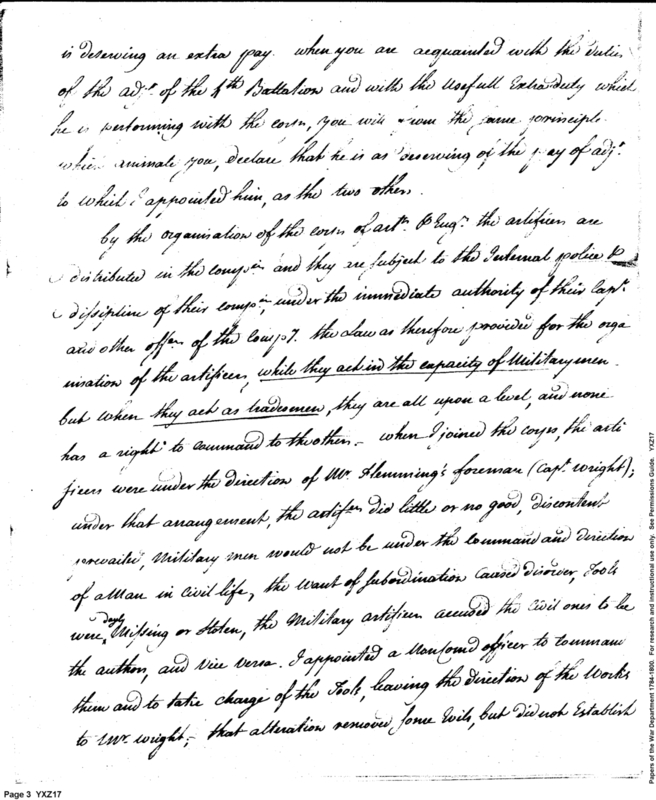 is deserving an extra pay. when you are acquainted with the duties
of the adjt. of the 4th Battalion and with the Usefull Extra duty which
he is performing with the corps, you will from the same principle
which animate you, declare that he is as deserving of the pay of adjt.
to which I appointed him, as the two others.
by the organisation of the corps of arty. & Engrs. the artificers are
distributed in the companies and they are subject to the Internal police &
dissipline of their company, under the immediate authority of their Capt.
and other offers of the Compy. the Law as therefore provided for the orga
nisation of the artificers, while they act in the capacity of Military men.
but when they act as tradesmen, they are all upon a level, and none
has a right to command to the others. - when I joined the corps, the arti
ficers were under the direction of Mr. Flemming's foreman (Capt. Wright);
under that arrangement, the artifers did little or no good, discontent
prevailed, Military men would not be under the Command and direction
of a Man in Civil life, the want of subordination caused disorder, Tools
were dayly Missing or Stolen, the Military artificers accused the Civil ones to be
the authors, and vice versa. I appointed a Non Comd officer to command
them and to take charge of the Tools, leaving the direction of the Works
to Mr. Wright; that alteration removed some Evils, but did not Establish
Page 3 YXZ17
Papers of the War Department 1784-1800. For research and instructional use only. See Permissions Guide. YXZ17